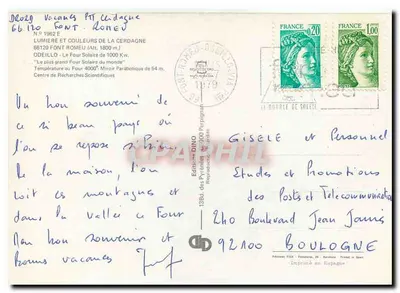 DROZD vacances PTT Cerdagne
66120 FONT-ROMEU
N° 1962 E
LUMIERE ET COULEURS DE LA CERDAGNE
66120 FONT ROMEU (Alt. 1800 m.)
ODEILLO - Le Four Solaire de 1000 Kw.
"Le plus grand Four Solaire du monde"
Température au Four 4000° Miroir Parabolique de 54 m.
Centre de Recherches Scientifiques
Un bon souvenir de
ce si beau pays où
l'on se repose si bien
De la maison, l'on
voit les montagnes et
dans la vallée le Four
Mon bon souvenir et
Bonnes vacances
Editions DINO
0.20
1.00
GISELE et Personnel
Etudes et Promotions
des Postes et Telecommunications
240 Boulevard Jean Jaurès
92100 BOULOGNE